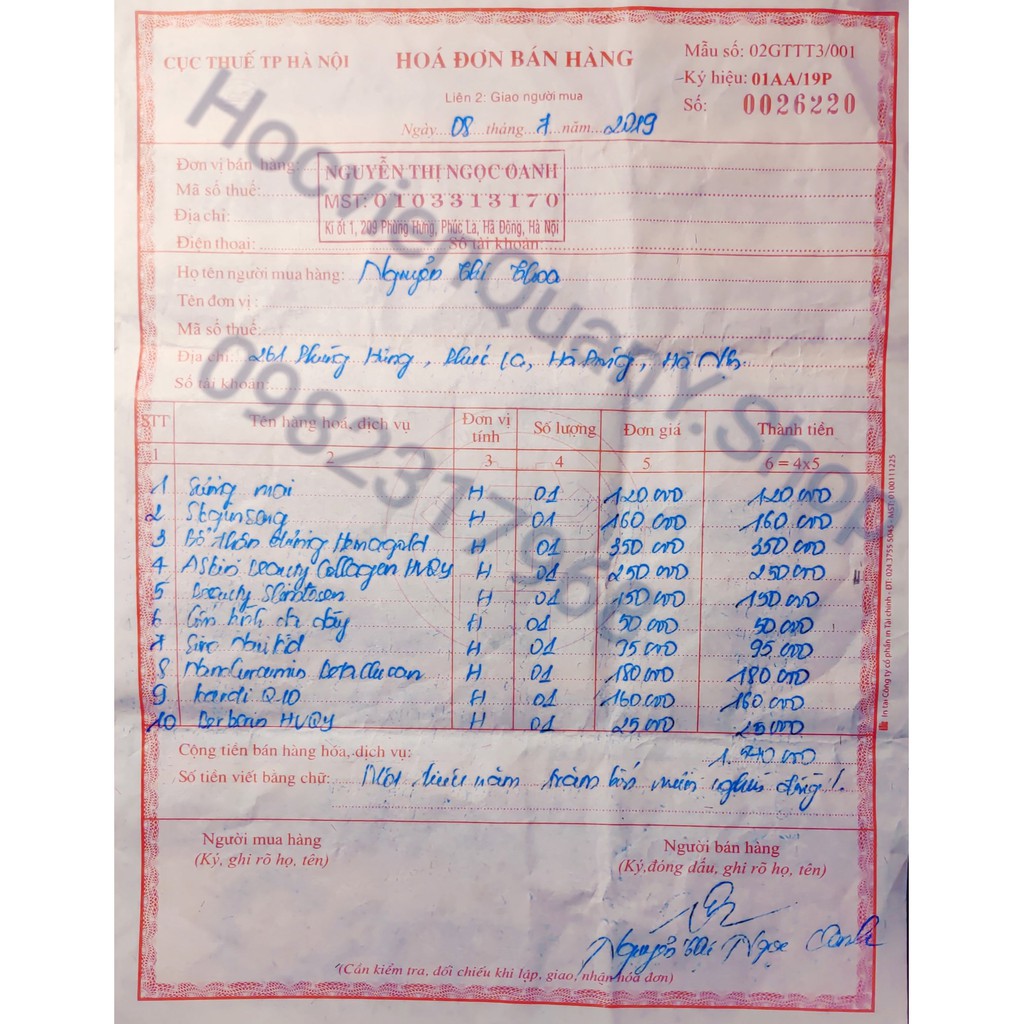 CỤC THUẾ TP HÀ NỘI
HOÁ ĐƠN BÁN HÀNG
Mẫu số: 02GTTT3/001
Ký hiệu: 01AA/19P
Liên 2: Giao người mua
Số: 0026220
Ngày 08 tháng 7 năm 2019
Đơn vị bán hàng: NGUYỄN THỊ NGỌC OANH
Mã số thuế: MST: 0103313170
Địa chỉ: Ki ốt 1, 209 Phùng Hưng, Phúc La, Hà Đông, Hà Nội
Điện thoại: Số tài khoản:
Họ tên người mua hàng: Nguyễn Thị Thoa
Tên đơn vị:
Mã số thuế:
Địa chỉ: 261 Phùng Hưng, Phúc La, Hà Đông, Hà Nội
Số tài khoản:
STT Tên hàng hoá, dịch vụ Đơn vị tính Số lượng Đơn giá Thành tiền
1 2 3 4 5 6 = 4x5
1 H 01 120.000 120.000
2 H 01 160.000 160.000
3 Hemagold H 01 350.000 350.000
4 Beauty Collagen HVQY H 01 250.000 250.000
5 Beauty H 01 150.000 150.000
6 dạ dày H 01 50.000 50.000
7 H 01 95.000 95.000
8 H 01 180.000 180.000
9 Kardi Q10 H 01 160.000 160.000
10 Berberin HVQY H 01 25.000 25.000
Cộng tiền bán hàng hóa, dịch vụ: 1.540.000
Số tiền viết bằng chữ: Một triệu năm trăm bốn mươi nghìn đồng!
Người mua hàng
(Ký, ghi rõ họ, tên)
Người bán hàng
(Ký, đóng dấu, ghi rõ họ, tên)
Nguyễn Thị Ngọc Oanh
(Cần kiểm tra, đối chiếu khi lập, giao, nhận hóa đơn)
In tại Công ty cổ phần in Tài chính - ĐT: 024.3755 5045 - MST: 0100111225
HocvienQuanY.Shop